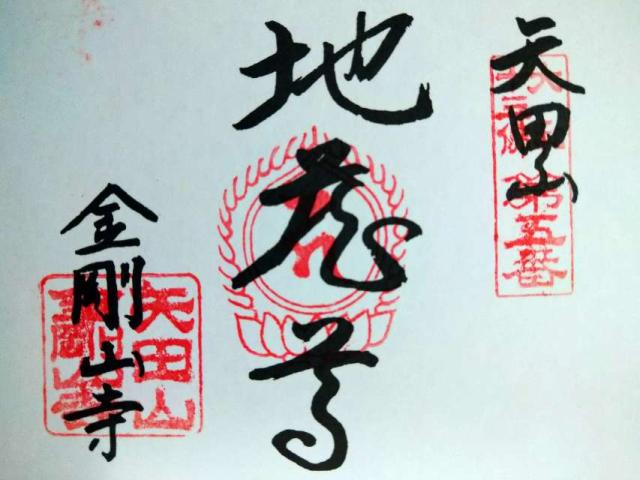 矢田山
第五番
地蔵尊
金剛山寺
矢田山
金剛山寺